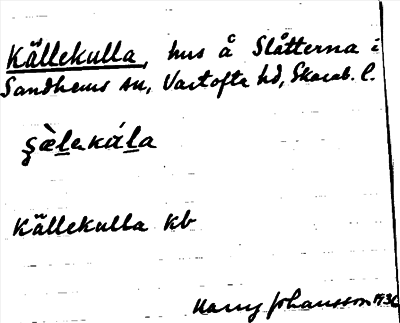 Källekulla, hus å Slåtterna i
Sandhems sn, Vartofta hd, Skarab. l.
Källekulla kb
Harry Johansson 1930